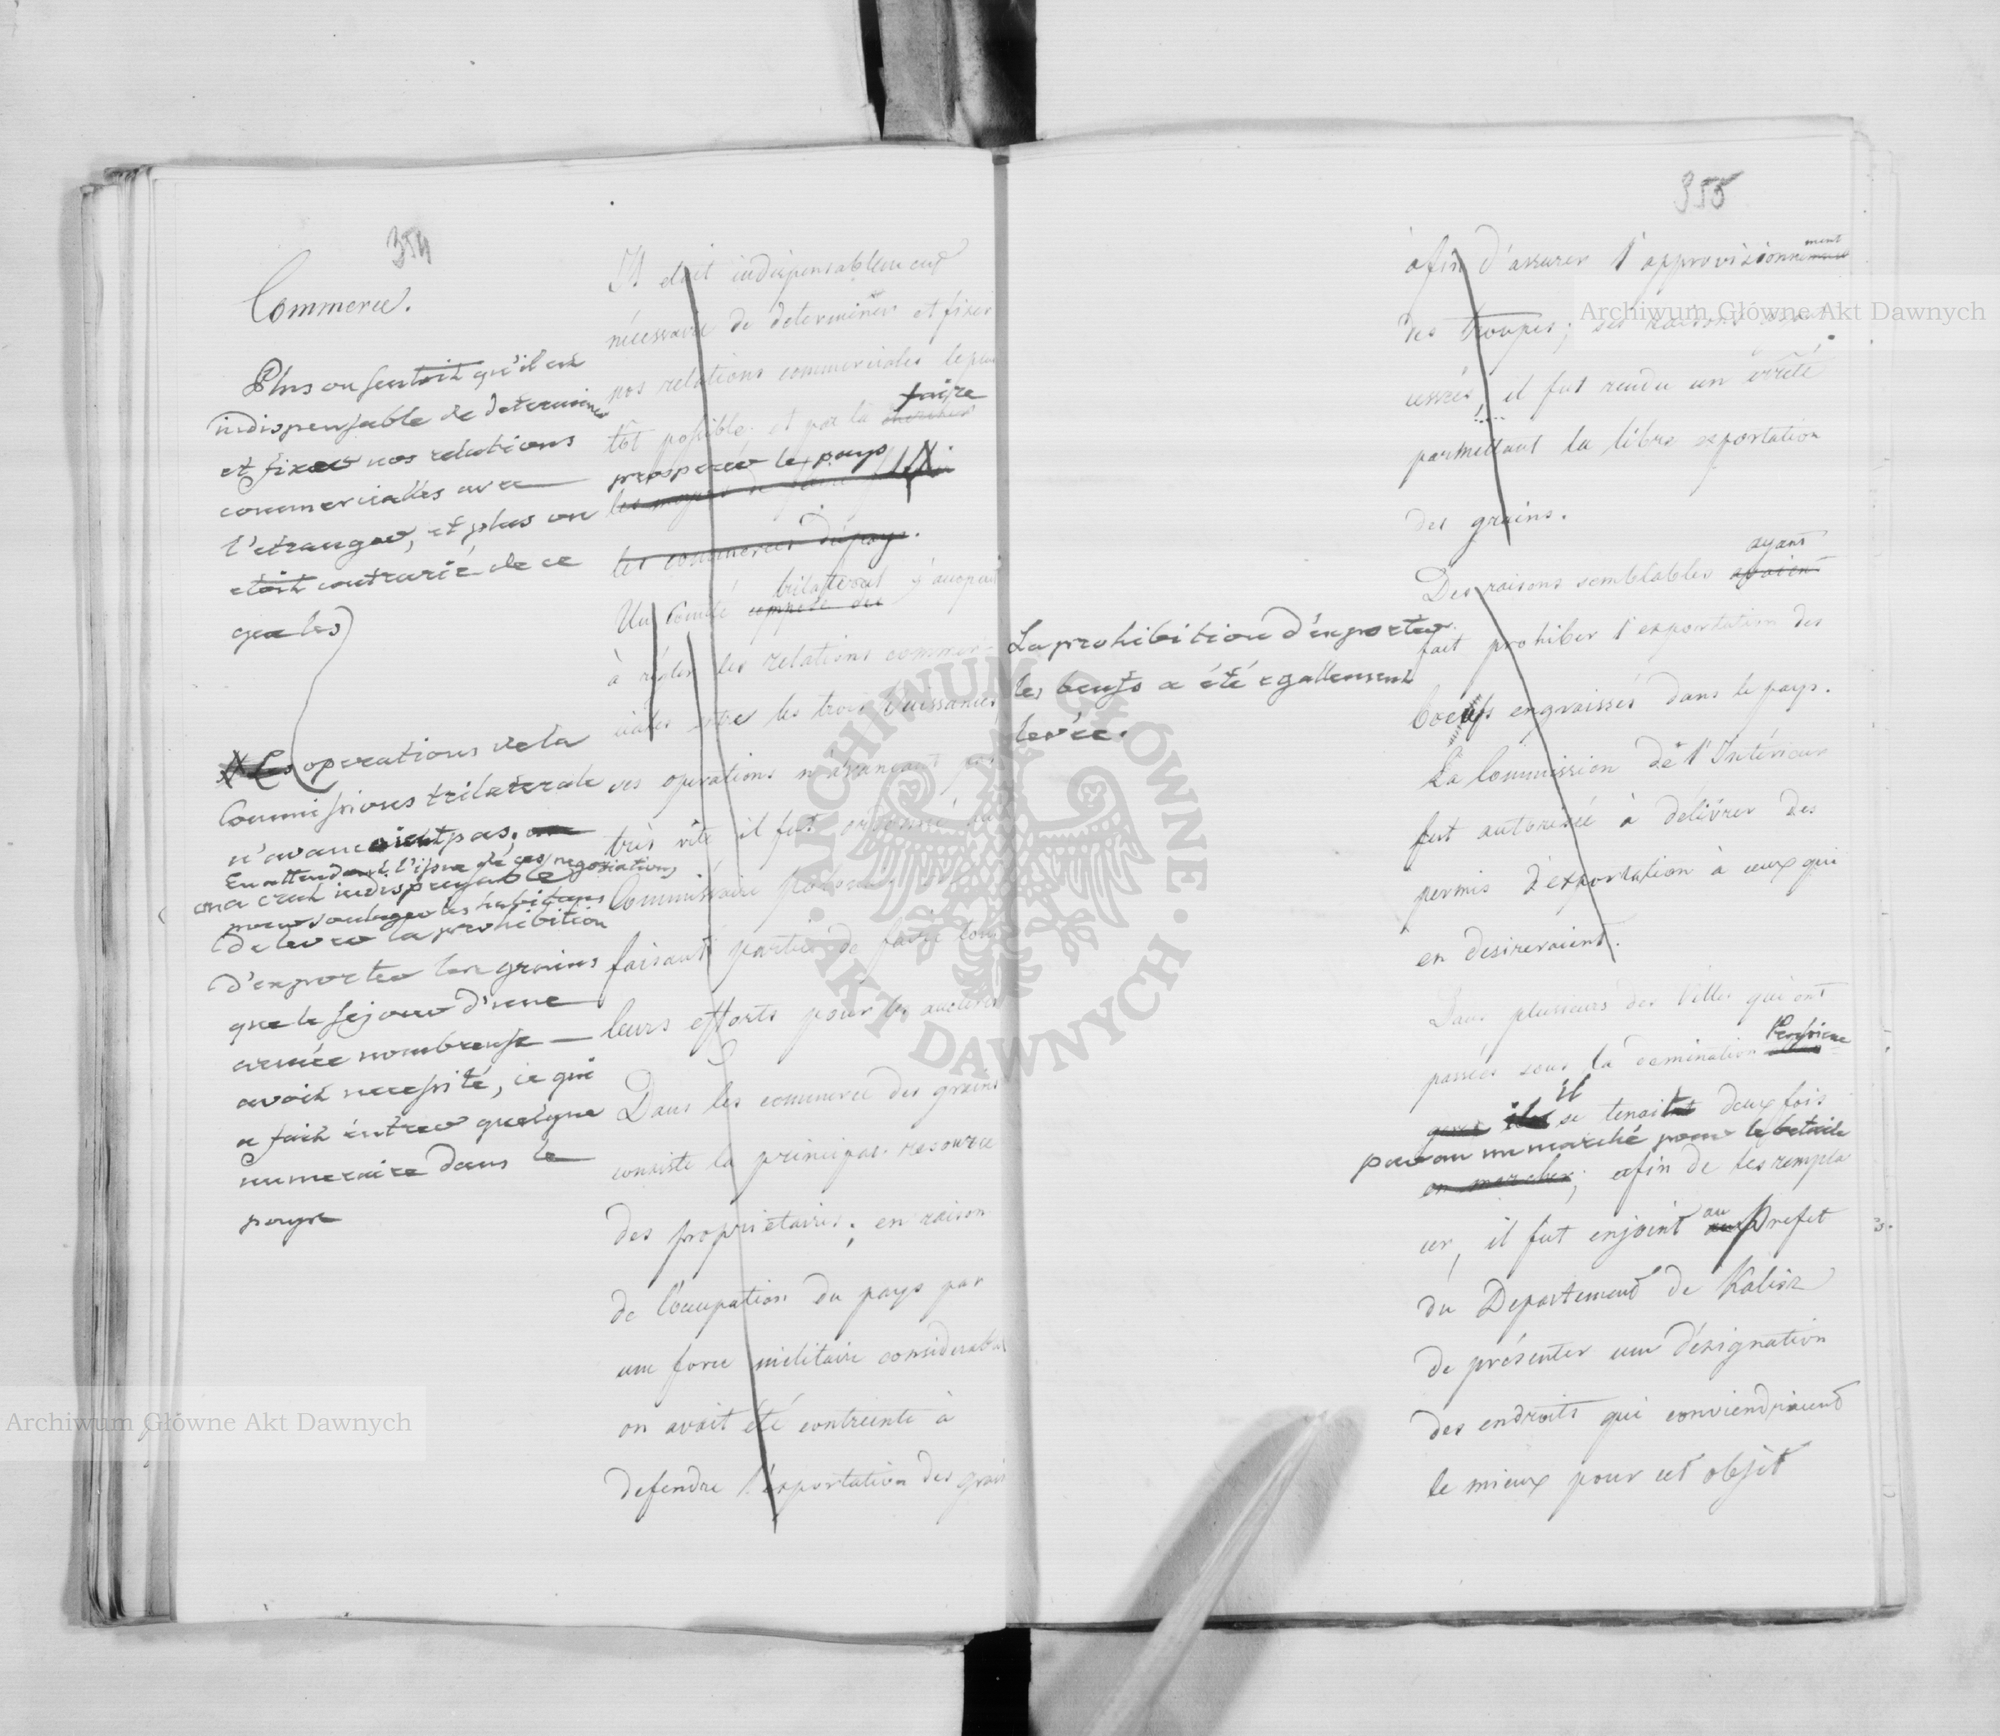 354
Commerce.
Plus on sentoit qu'il est
indispensable de determiner
et fixer nos relations
commercialles avec
l'etranger, et plus on
etoit contrarié de ce
que les
Les operations de la
Commissions trilaterale
n'avancoient pas. on
En attendant l'issue de ces negociations
on a crut indispensable
pour soulager les habitans
de lever la prohibition
d'exporter les grains
que le sejour d'une
armée nombreuse
avoit necessité, ce qui
a fait entrer quelque
numeraire dans le
pays
Il etait indispensablement
nécessaire de determiner et fixer
nos relations commerciales le plu
tôt possible et par là faire
prosperer le pays
les moyens de faire
les commerces du pays.
trilateral
Un Comité composé des s'occupait
à régler les relations commer-
ciales entre les trois Puissances
ses operations n'avançant pas
très vite il fut ordonné au
Commissaire
faisant partie de faire tous
leurs efforts pour les accelerer
Dans les commerce des grains
consiste la principale resource
des propriétaires; en raison
de l'occupation du pays par
une force militaire considerable
on avait été contreinte à
defendre l'exportation des grains
355
afin d'assurer l'approvisionnement
des troupes; ces raisons ayant
cessées, il fut rendu un arrêté
permettant la libre exportation
des grains.
ayant
Des raisons semblables avaient
fait prohiber l'exportation des
boeufs engraissés dans le pays.
La Commission de l'Intérieur
fut autorisée à délivrer des
permis d'exportation à ceux qui
en desireraient.
La prohibition d'exporter
les boeufs a été egallement
levée.
Dans plusieurs des Villes qui ont
passées sous la domination Prussiene
il
se tenait deux fois
par an un marché pour le betaile
on marché; afin de les rempla
cer, il fut enjoint au Prefet
du Departement de Kalisz
de présenter une désignation
des endroits qui conviendraient
le mieux pour cet objet
Archiwum Główne Akt Dawnych
Archiwum Główne Akt Dawnych
ARCHIWUM GŁÓWNE
AKT DAWNYCH